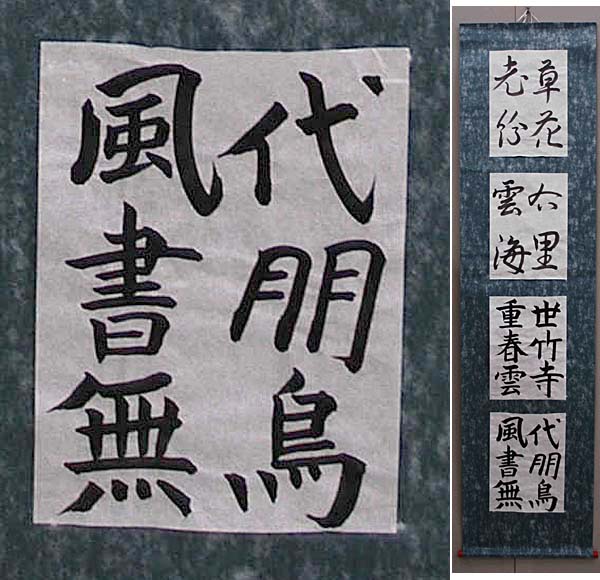 代朋鳥
風書無
草花
里
雲海
世竹寺
重春雲
代朋鳥
風書無